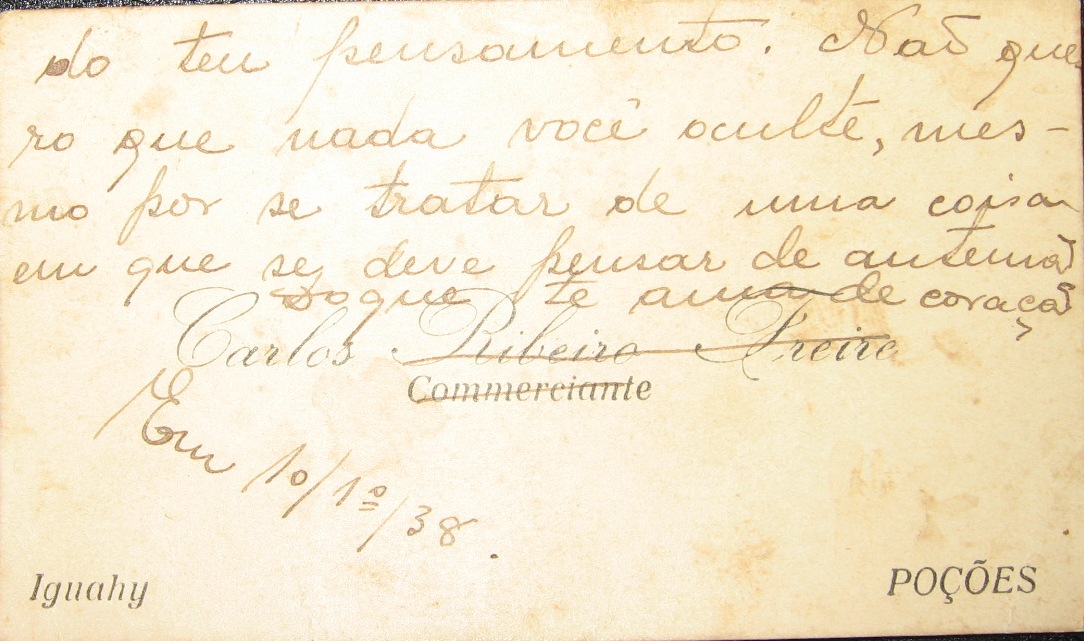 do teu pensamento. Não que
ro que nada você oculte, mes-
mo por se tratar de uma coisa
em que se deve pensar de antemão
Do que te ama de coração
Carlos Ribeiro Freire
Commerciante
Em 1º/1º/38.
Iguahy
POÇÕES